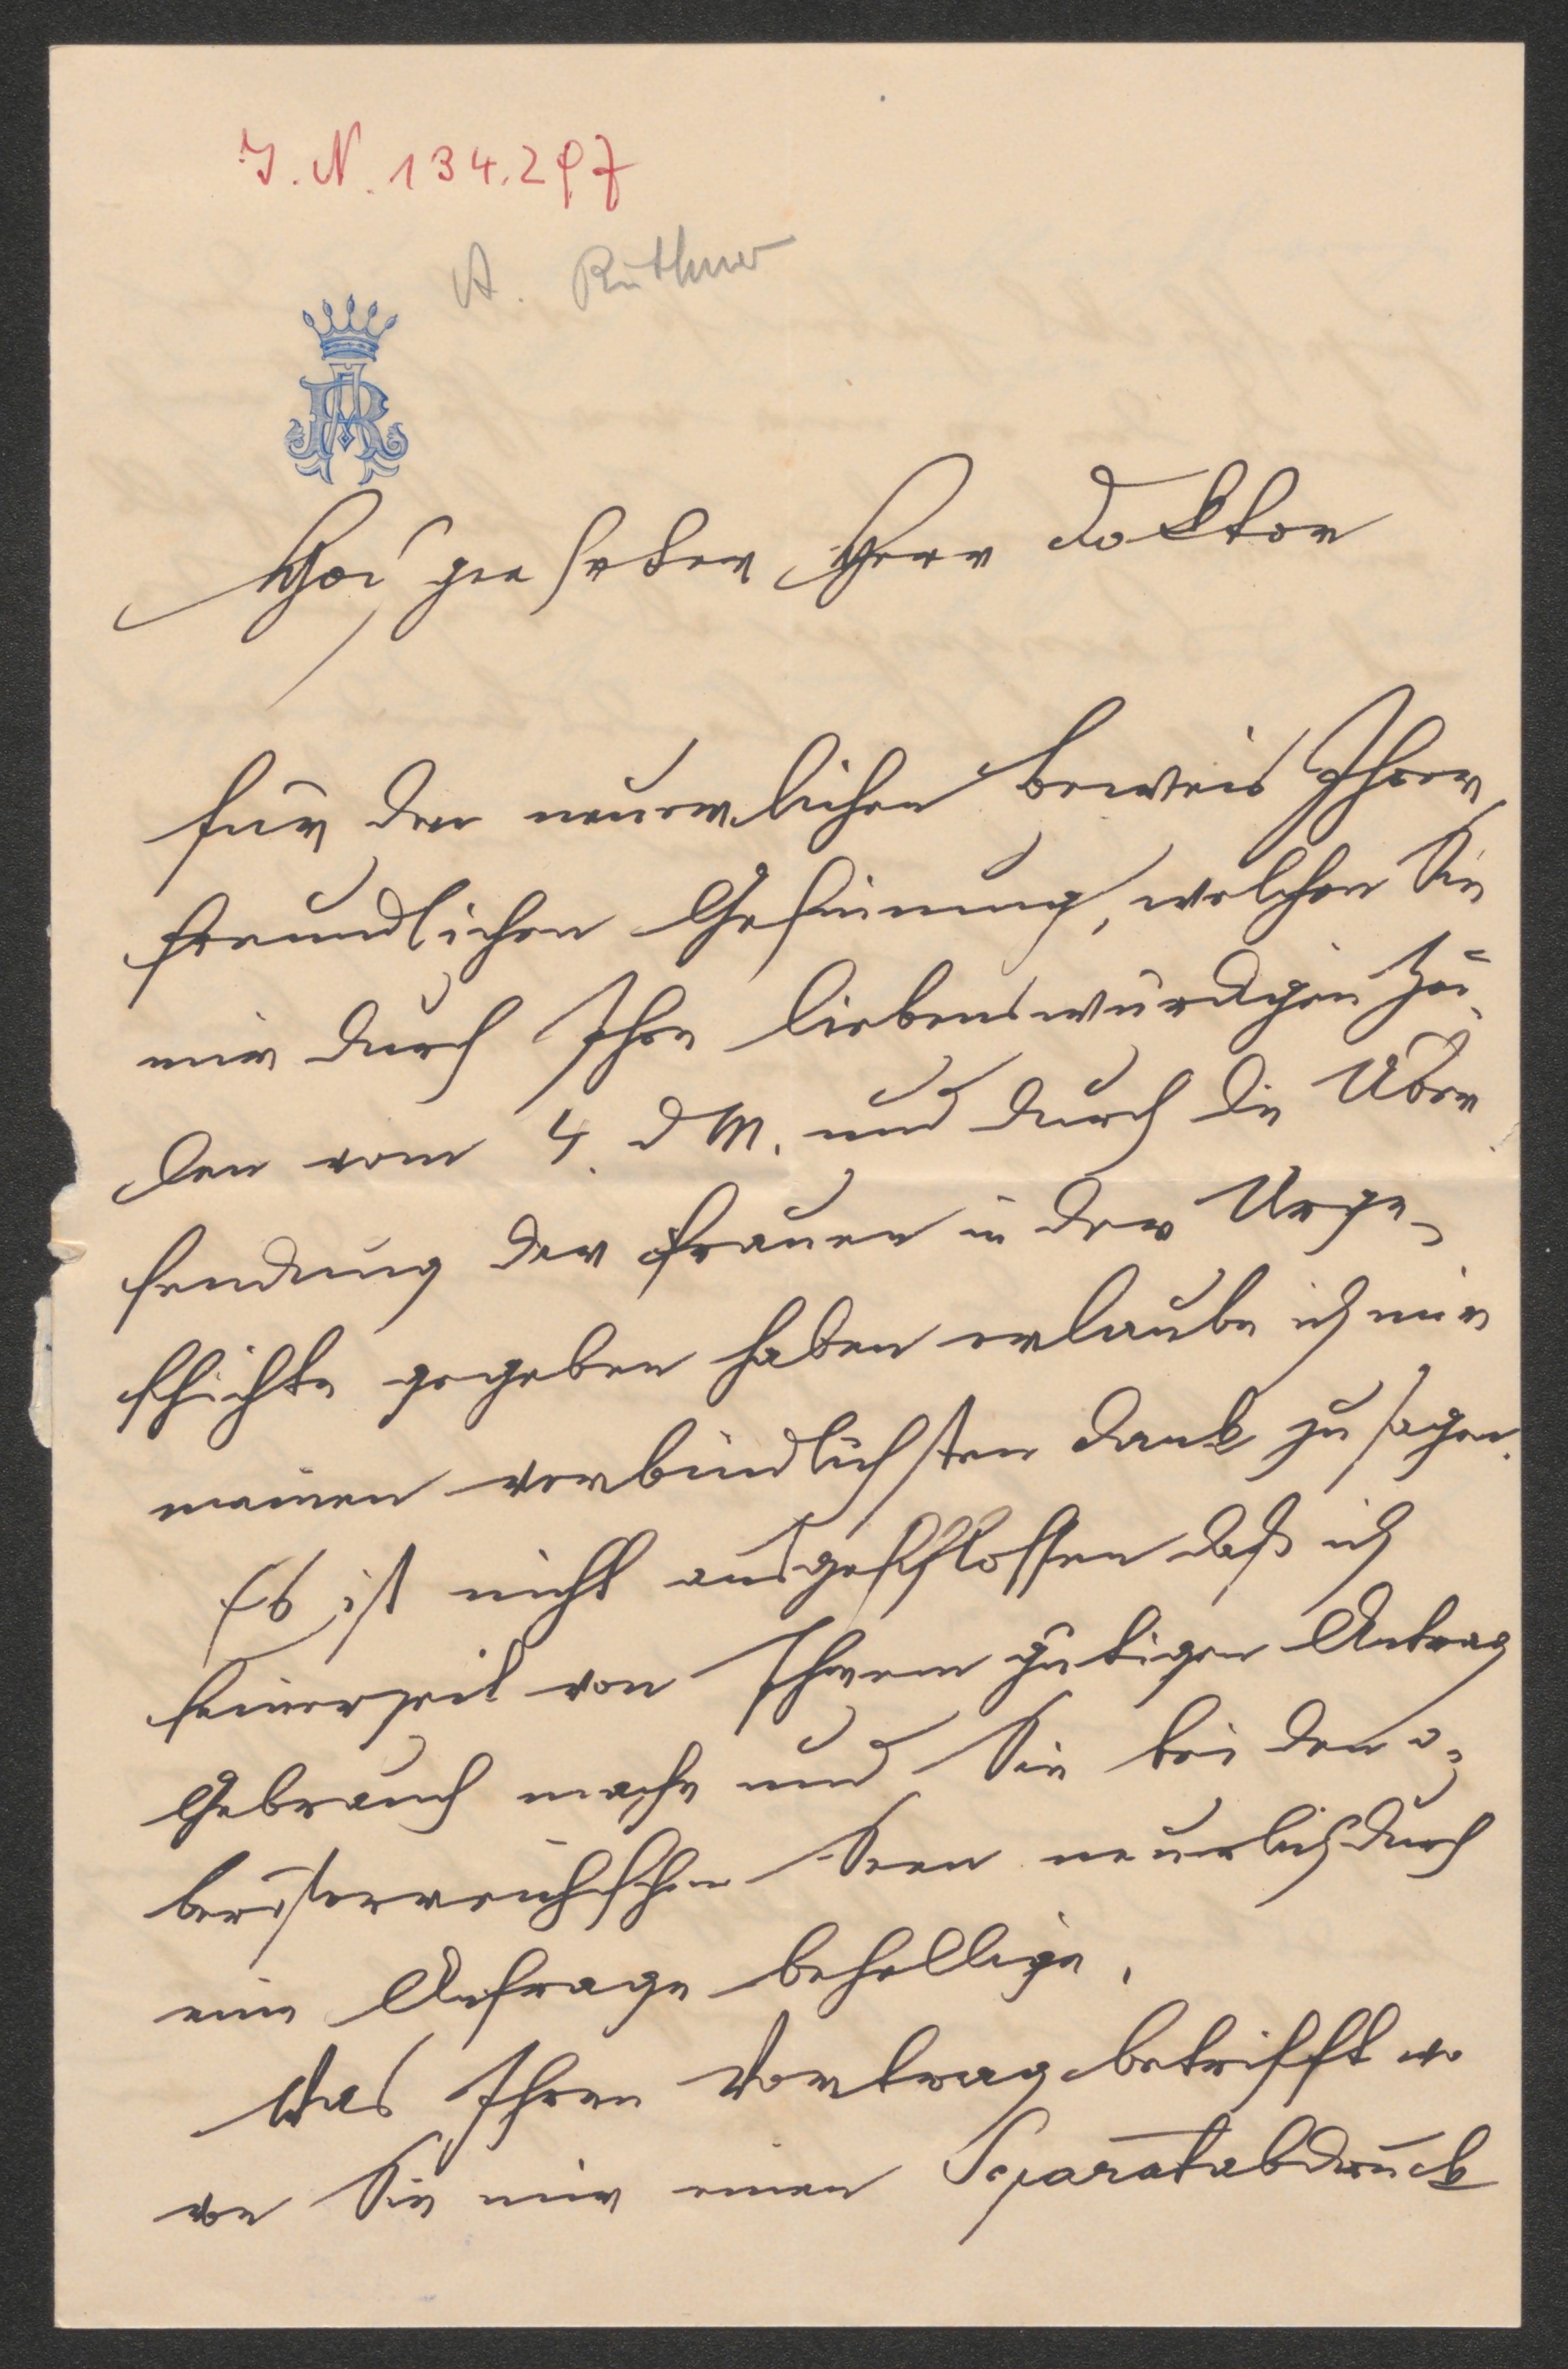 I. N. 134.297
A. Ruthner
AR
Hochgeehrter Herr Doktor
für den neuerlichen Beweis Ihrer
freundlichen Gesinnung, welchen Sie
mir durch Ihre liebenswürdigen Zei-
len vom 4. d M. und durch die Über
sendung der Frauen in der Urge-
schichte gegeben haben erlaube ich mir
meinen verbindlichsten Dank zu sagen.
Es ist nicht ausgeschlossen daß ich
seinerzeit von Ihrem gütigen Antrag
Gebrauch mache und Sie bei den o-
berösterreichischen Seen neuerlich durch
eine Anfrage behellige.
Was Ihren Vortrag betrifft wo
von Sie mir einen Separatabdruck